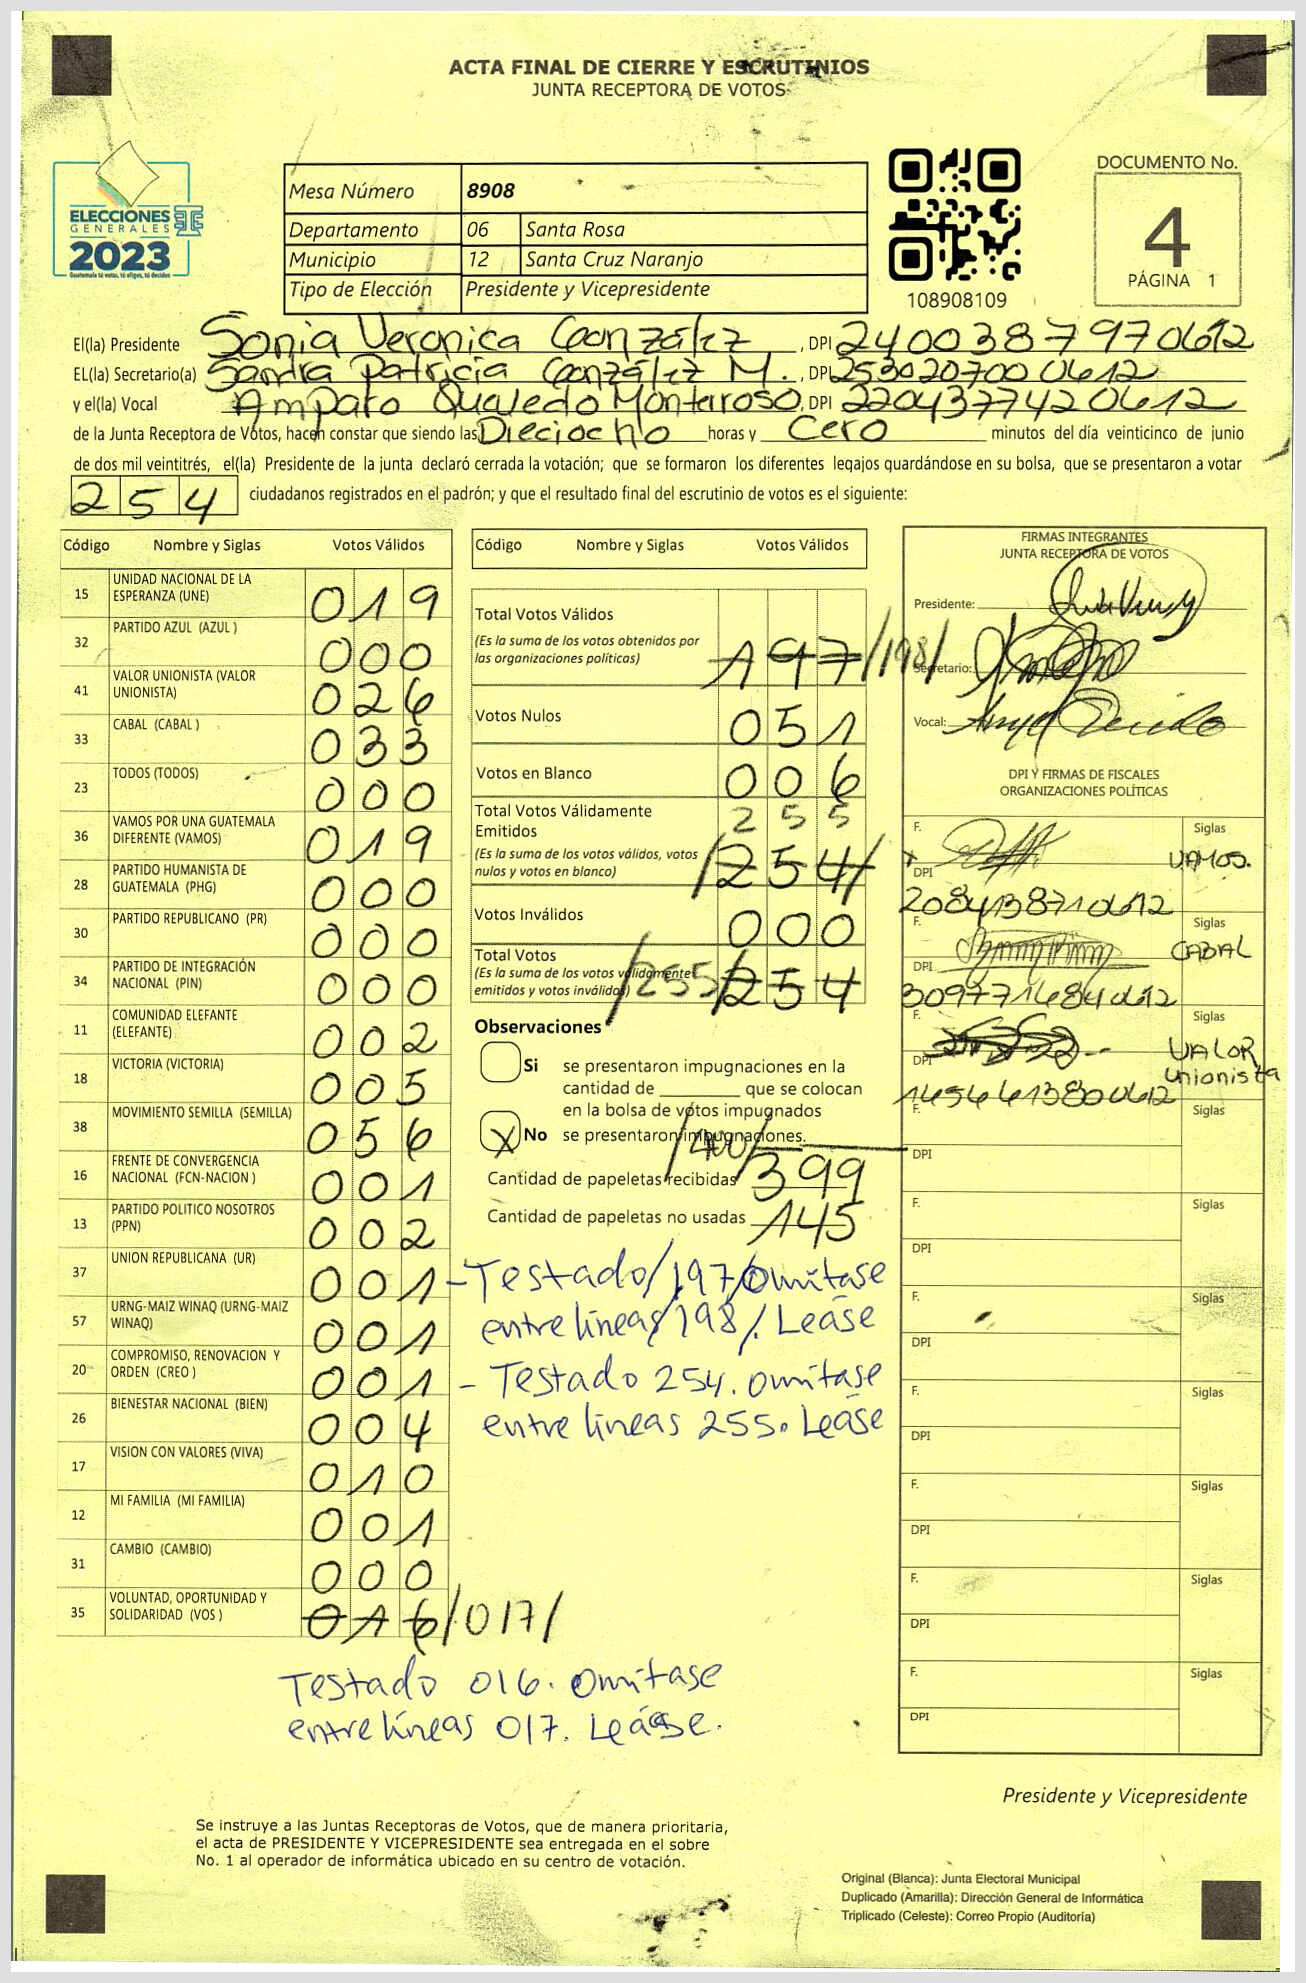 ACTA FINAL DE CIERRE Y ESCRUTINIOS
JUNTA RECEPTORA DE VOTOS
ELECCIONES
GENERALES
2023
Guatemala tú votas, tú eliges, tú decides
Mesa Número 8908
Departamento 06 Santa Rosa
Municipio 12 Santa Cruz Naranjo
Tipo de Elección Presidente y Vicepresidente
108908109
DOCUMENTO No.
4
PÁGINA 1
El(la) Presidente Sonia Veronica González, DPI 2400387970612
EL(la) Secretario(a) Sandra Patricia González M., DPI 2530207000612
y el(la) Vocal Amparo Quevedo Monterroso, DPI 2204377420612
de la Junta Receptora de Votos, hacen constar que siendo las Dieciocho horas y Cero minutos del día veinticinco de junio
de dos mil veintitrés, el(la) Presidente de la junta declaró cerrada la votación; que se formaron los diferentes legajos guardándose en su bolsa, que se presentaron a votar
254 ciudadanos registrados en el padrón; y que el resultado final del escrutinio de votos es el siguiente:
Código Nombre y Siglas Votos Válidos
15 UNIDAD NACIONAL DE LA ESPERANZA (UNE) 019
32 PARTIDO AZUL (AZUL ) 000
41 VALOR UNIONISTA (VALOR UNIONISTA) 026
33 CABAL (CABAL ) 033
23 TODOS (TODOS) 000
36 VAMOS POR UNA GUATEMALA DIFERENTE (VAMOS) 019
28 PARTIDO HUMANISTA DE GUATEMALA (PHG) 000
30 PARTIDO REPUBLICANO (PR) 000
34 PARTIDO DE INTEGRACIÓN NACIONAL (PIN) 000
11 COMUNIDAD ELEFANTE (ELEFANTE) 002
18 VICTORIA (VICTORIA) 005
38 MOVIMIENTO SEMILLA (SEMILLA) 056
16 FRENTE DE CONVERGENCIA NACIONAL (FCN-NACION ) 001
13 PARTIDO POLITICO NOSOTROS (PPN) 002
37 UNION REPUBLICANA (UR) 001
57 URNG-MAIZ WINAQ (URNG-MAIZ WINAQ) 001
20 COMPROMISO, RENOVACION Y ORDEN (CREO ) 001
26 BIENESTAR NACIONAL (BIEN) 004
17 VISION CON VALORES (VIVA) 010
12 MI FAMILIA (MI FAMILIA) 001
31 CAMBIO (CAMBIO) 000
35 VOLUNTAD, OPORTUNIDAD Y SOLIDARIDAD (VOS ) 016 /017/
Testado 016. Omitase
entre líneas 017. Leáse.
Código Nombre y Siglas Votos Válidos
Total Votos Válidos
(Es la suma de los votos obtenidos por
las organizaciones políticas) 197 /198/
Votos Nulos 051
Votos en Blanco 006
Total Votos Válidamente
Emitidos 255
(Es la suma de los votos válidos, votos
nulos y votos en blanco) /254/
Votos Inválidos 000
Total Votos
(Es la suma de los votos válidamente
emitidos y votos inválidos) /255/ 254
Observaciones
Si se presentaron impugnaciones en la
cantidad de que se colocan
en la bolsa de votos impugnados
X No se presentaron impugnaciones.
/400/
Cantidad de papeletas recibidas 399
Cantidad de papeletas no usadas 145
- Testado /197/ Omitase
entre líneas /198/. Leáse
- Testado 254. Omitase
entre líneas 255. Leáse
FIRMAS INTEGRANTES
JUNTA RECEPTORA DE VOTOS
Presidente:
Secretario:
Vocal:
DPI Y FIRMAS DE FISCALES
ORGANIZACIONES POLÍTICAS
F. Siglas
VAMOS.
DPI
2084138710612
F. Siglas
CABAL
DPI
3097714840612
F. Siglas
VALOR
Unionista
DPI
1454641380612
F. Siglas
DPI
F. Siglas
DPI
F. Siglas
DPI
F. Siglas
DPI
F. Siglas
DPI
F. Siglas
DPI
F. Siglas
DPI
Presidente y Vicepresidente
Se instruye a las Juntas Receptoras de Votos, que de manera prioritaria,
el acta de PRESIDENTE Y VICEPRESIDENTE sea entregada en el sobre
No. 1 al operador de informática ubicado en su centro de votación.
Original (Blanca): Junta Electoral Municipal
Duplicado (Amarilla): Dirección General de Informática
Triplicado (Celeste): Correo Propio (Auditoría)